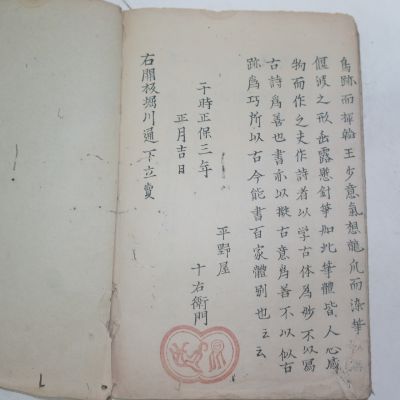 鳥跡而揮翰王少意氣想龍爪而染華
偃波之形垂露懸針等如此華體皆人心感
物而作之夫作詩者以学古体為妙不以寫
古詩為善也書亦以擬古意為善不以似古
跡為巧所以古今能書百家體別也云云
于時正保三年
正月吉日
平野屋
十右衛門
右開板堀川通下立賣